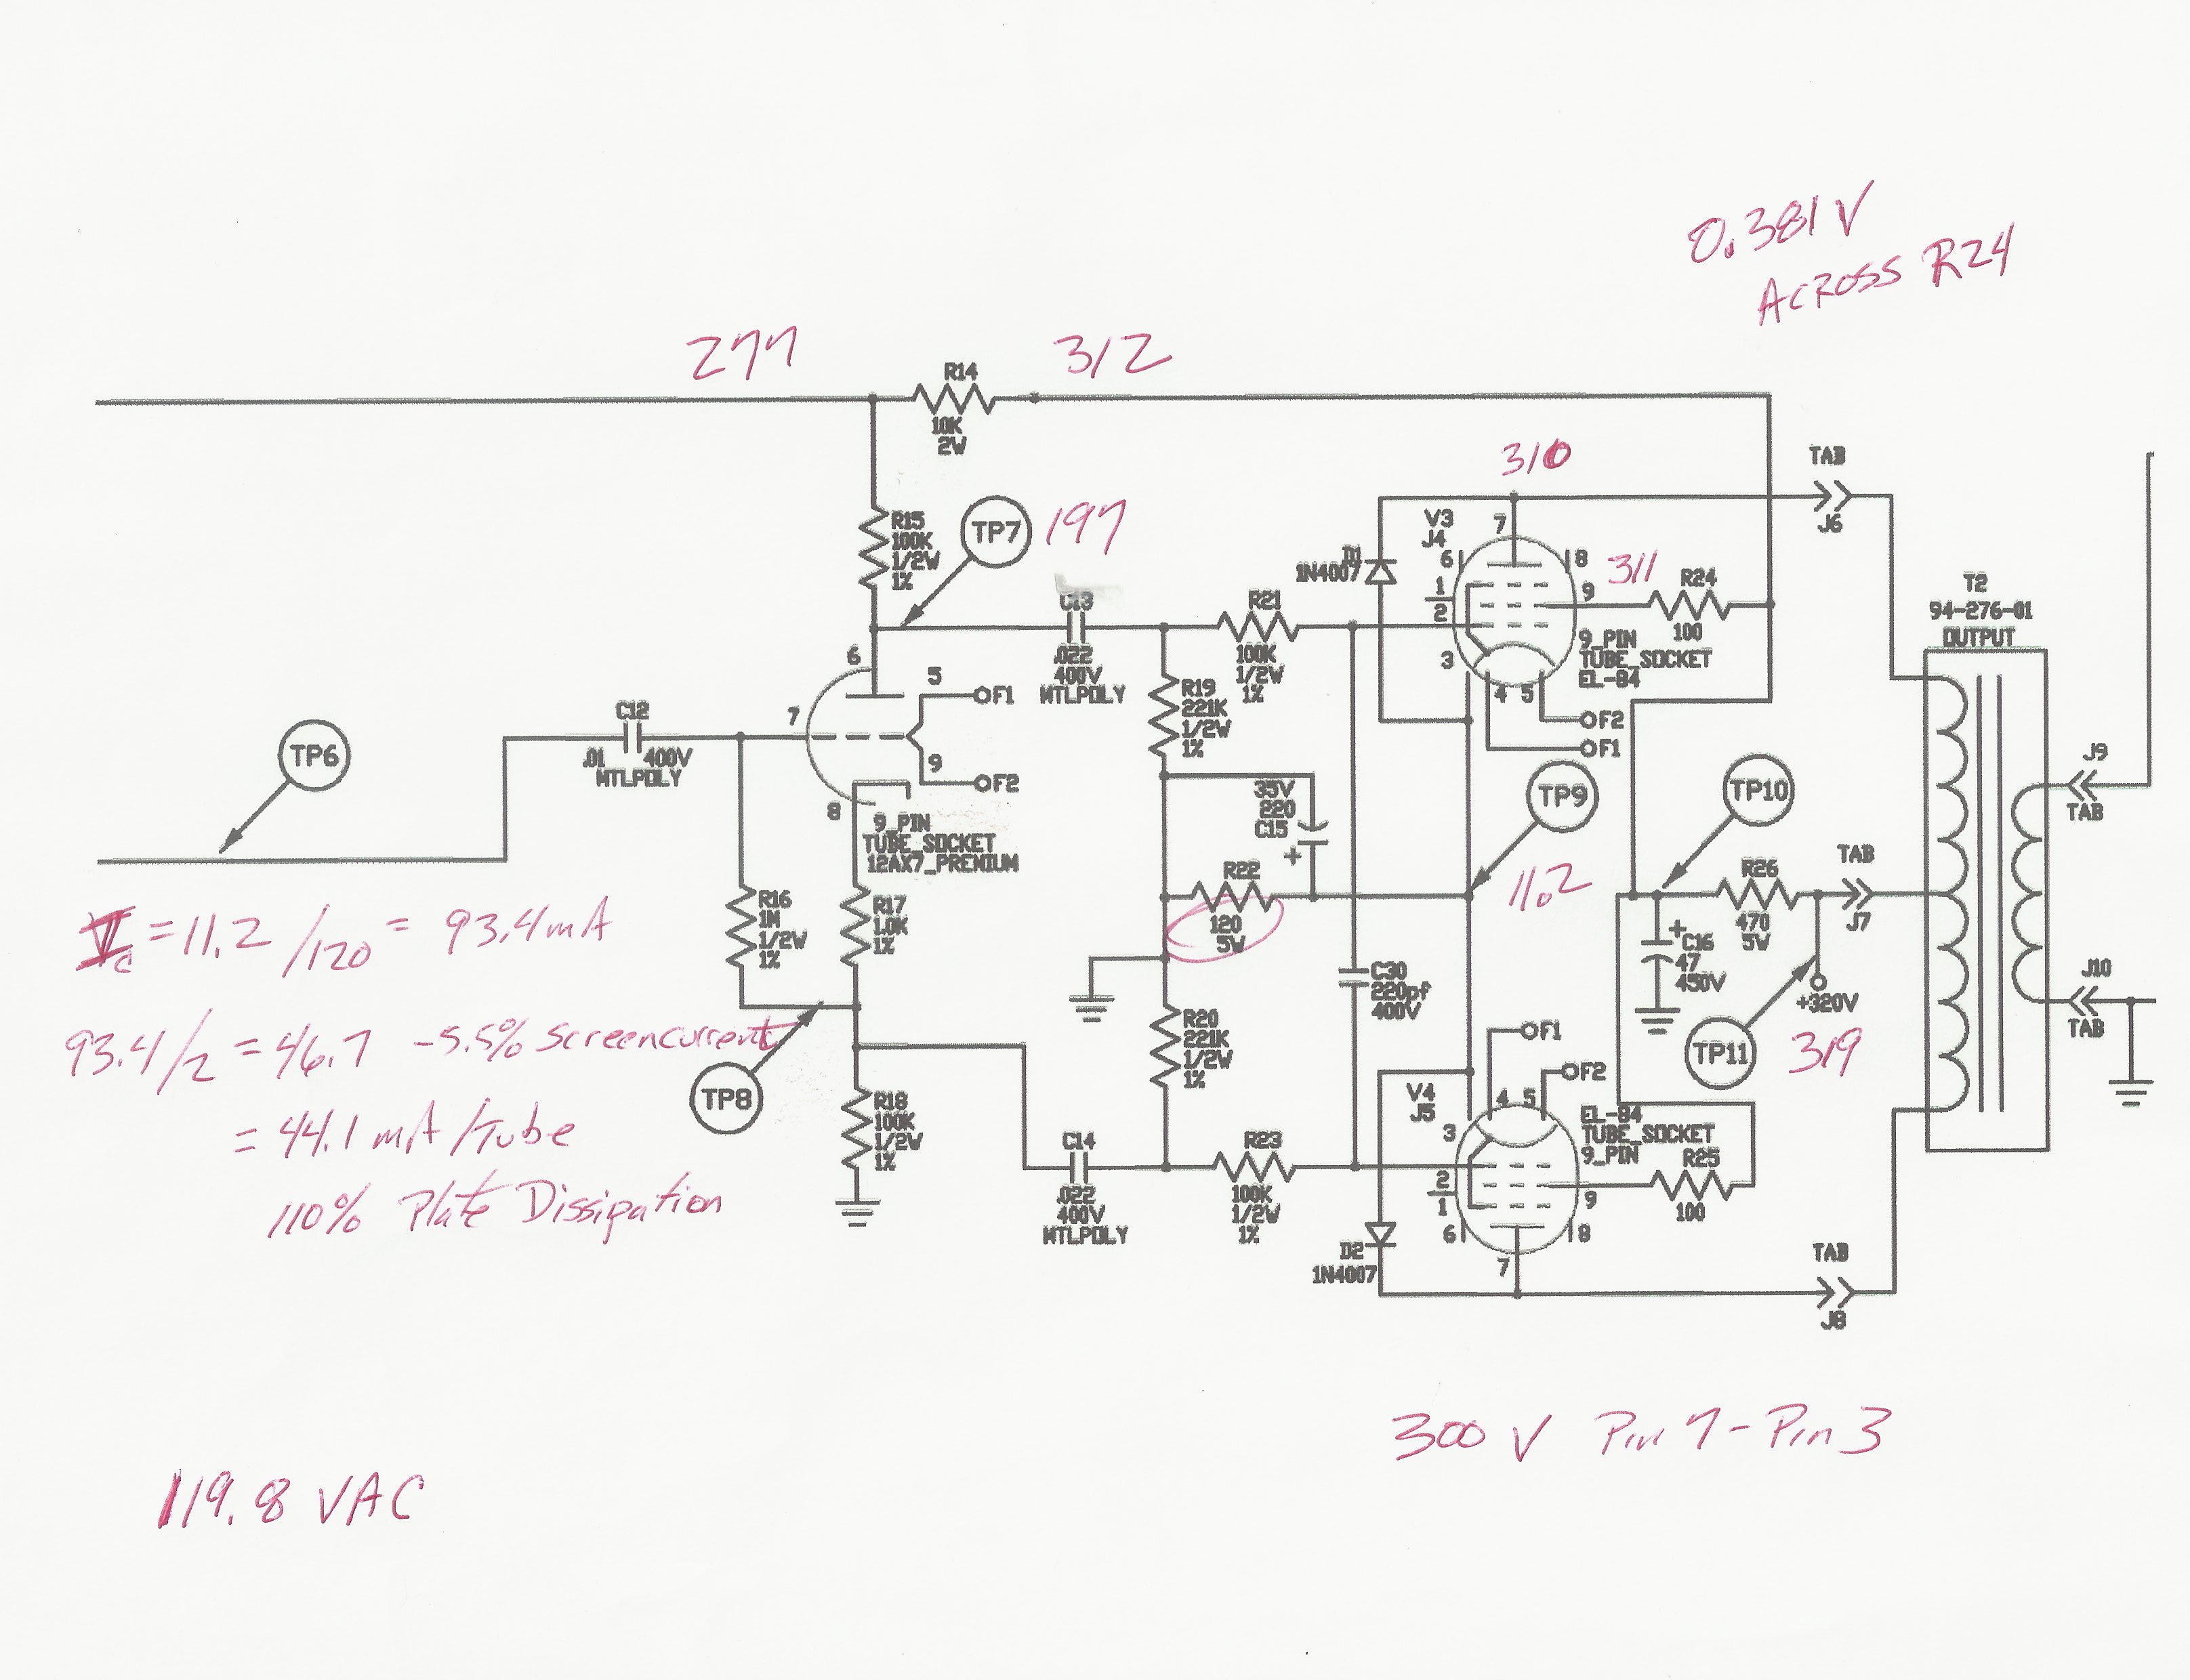 0.381 V
Across R24
277
312
R14
10K
2W
310
TAB
J6
R15
100K
1/2W
1%
TP7
197
V3
J4
7
6
8
D1
1N4007
1
2
9
311
R24
100
3
4
5
9_PIN
TUBE_SOCKET
EL-84
F2
F1
T2
94-276-01
OUTPUT
C13
.022
400V
MTLPOLY
R21
100K
1/2W
1%
6
5
F1
7
9
F2
8
9_PIN
TUBE_SOCKET
12AX7_PREMIUM
R19
221K
1/2W
1%
TP6
C12
.01 400V
MTLPOLY
35V
220
C15
+
TP9
TP10
J9
TAB
R22
120
5W
11.2
R26
470
5W
TAB
J7
R16
1M
1/2W
1%
R17
1.0K
1%
+
C16
47
450V
+320V
C30
220pf
400V
J10
TAB
TP11
319
Ic = 11.2 /120 = 93.4 mA
93.4/2 = 46.7 -5.5% Screen current
= 44.1 mA /Tube
110% Plate Dissipation
TP8
R18
100K
1/2W
1%
R20
221K
1/2W
1%
F1
F2
V4
J5
4
5
3
EL-84
TUBE_SOCKET
9_PIN
C14
.022
400V
MTLPOLY
R23
100K
1/2W
1%
2
1
9
6
8
7
R25
100
D2
1N4007
TAB
J8
300 V Pin 7 - Pin 3
119.8 VAC